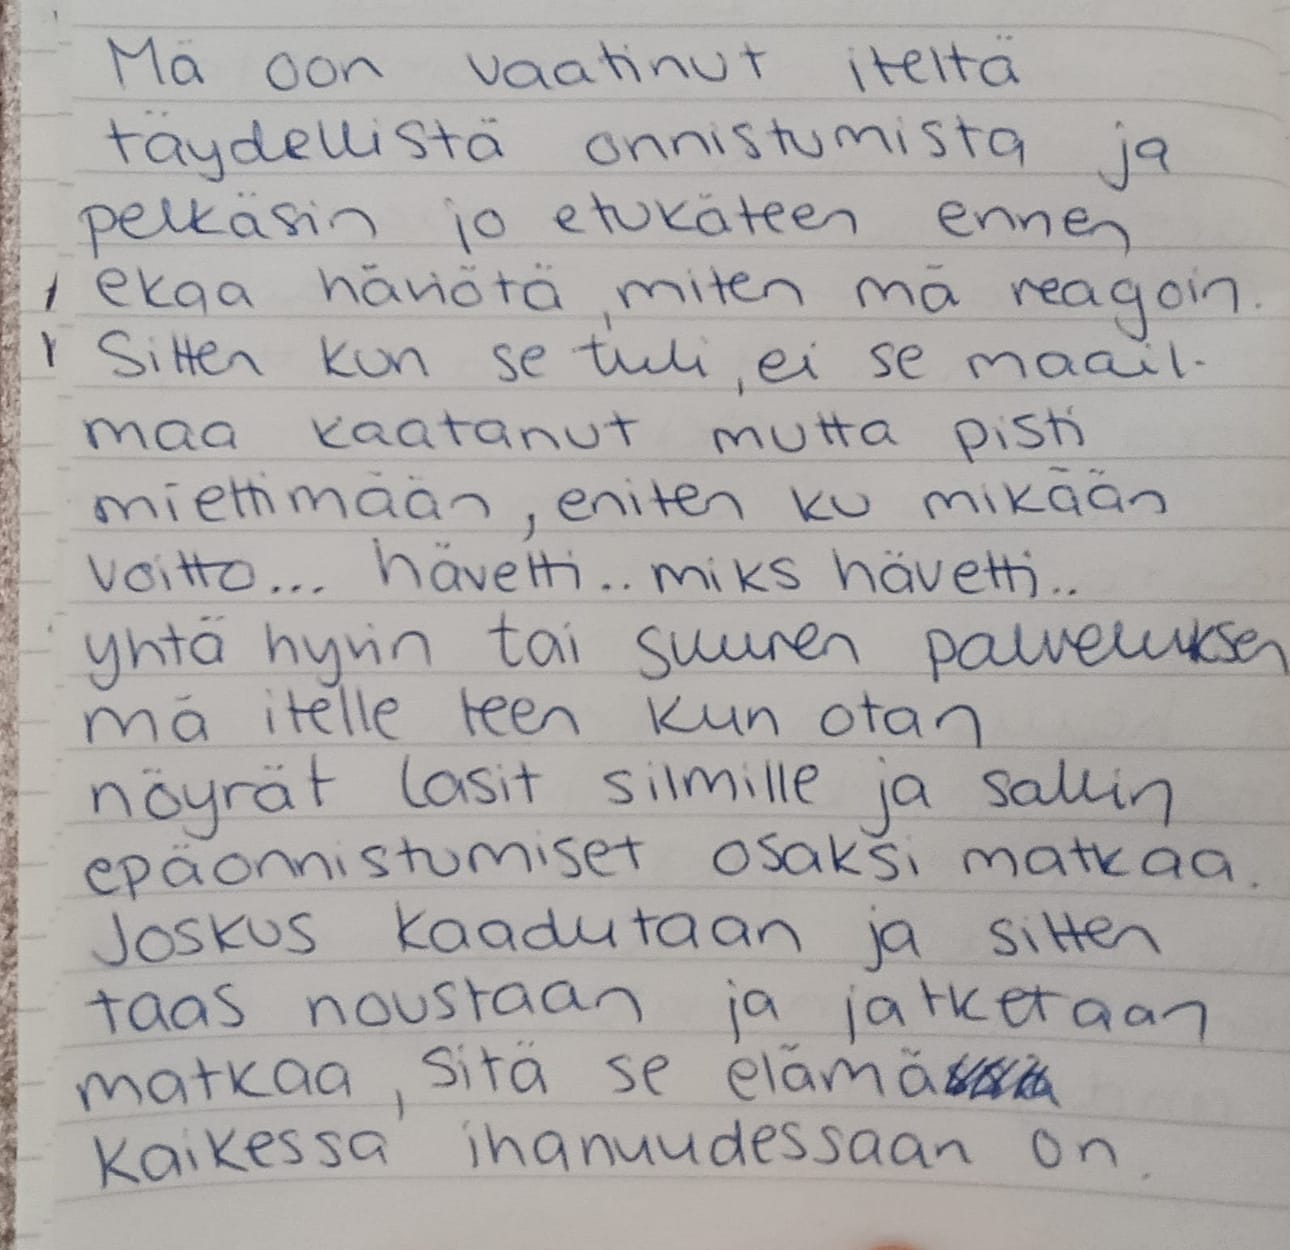 Mä oon vaatinut iteltä
täydellistä onnistumista ja
pelkäsin jo etukäteen ennen
ekaa häviötä, miten mä reagoin.
Sitten kun se tuli, ei se maail-
maa kaatanut mutta pisti
miettimään, eniten ku mikään
voitto... hävetti.. miks hävetti..
yhtä hyvin tai suuren palveluksen
mä itelle teen kun otan
nöyrät lasit silmille ja sallin
epäonnistumiset osaksi matkaa.
Joskus kaadutaan ja sitten
taas noustaan ja jatketaan
matkaa, sitä se elämä
kaikessa ihanuudessaan on.